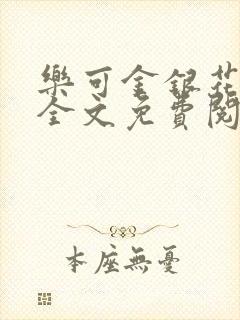 樂可金銀花
全文免費閱
本座無憂